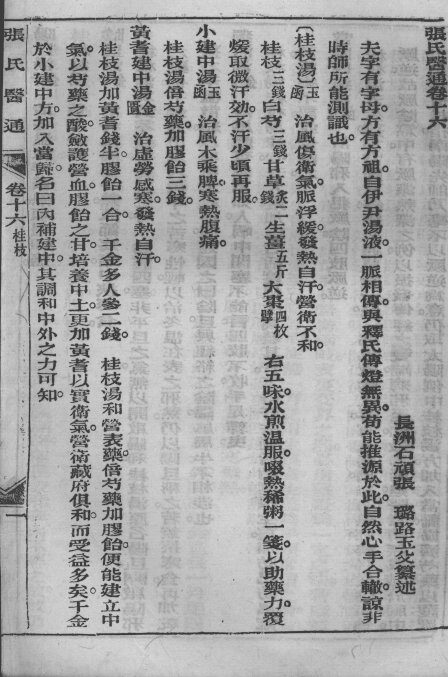 張氏醫通卷十六
長洲石頑張 璐路玉父纂述
夫字有字母。方有方祖。自伊尹湯液。一脈相傳。與釋氏傳燈無異。苟能推源於此。自然心手合轍。諒非
時師所能測識也。
〔桂枝湯〕玉函 治風傷衛氣。脈浮緩。發熱自汗。營衛不和。
桂枝三錢 白芍三錢 甘草炙二錢 生薑五斤 大棗四枚擘 右五味。水煎溫服。啜熱稀粥一箋。以助藥力。覆
煖取微汗。効。不汗。少頃再服。
小建中湯玉函 治風木乘脾。寒熱腹痛。
桂枝湯倍芍藥加膠飴三錢。
黃耆建中湯金匱 治虛勞感寒。發熱自汗。
桂枝湯加黃耆錢半膠飴一合。千金多人參二錢。 桂枝湯和營表藥。倍芍藥加膠飴。便能建立中
氣。以芍藥之酸。斂護營血。膠飴之甘。培養中土。更加黃耆以實衛氣。營衛藏府俱和。而受益多矣。千金
於小建中方。加入當歸。名曰內補建中。其調和中外之力可知。
張氏醫通 卷十六 桂枝 一